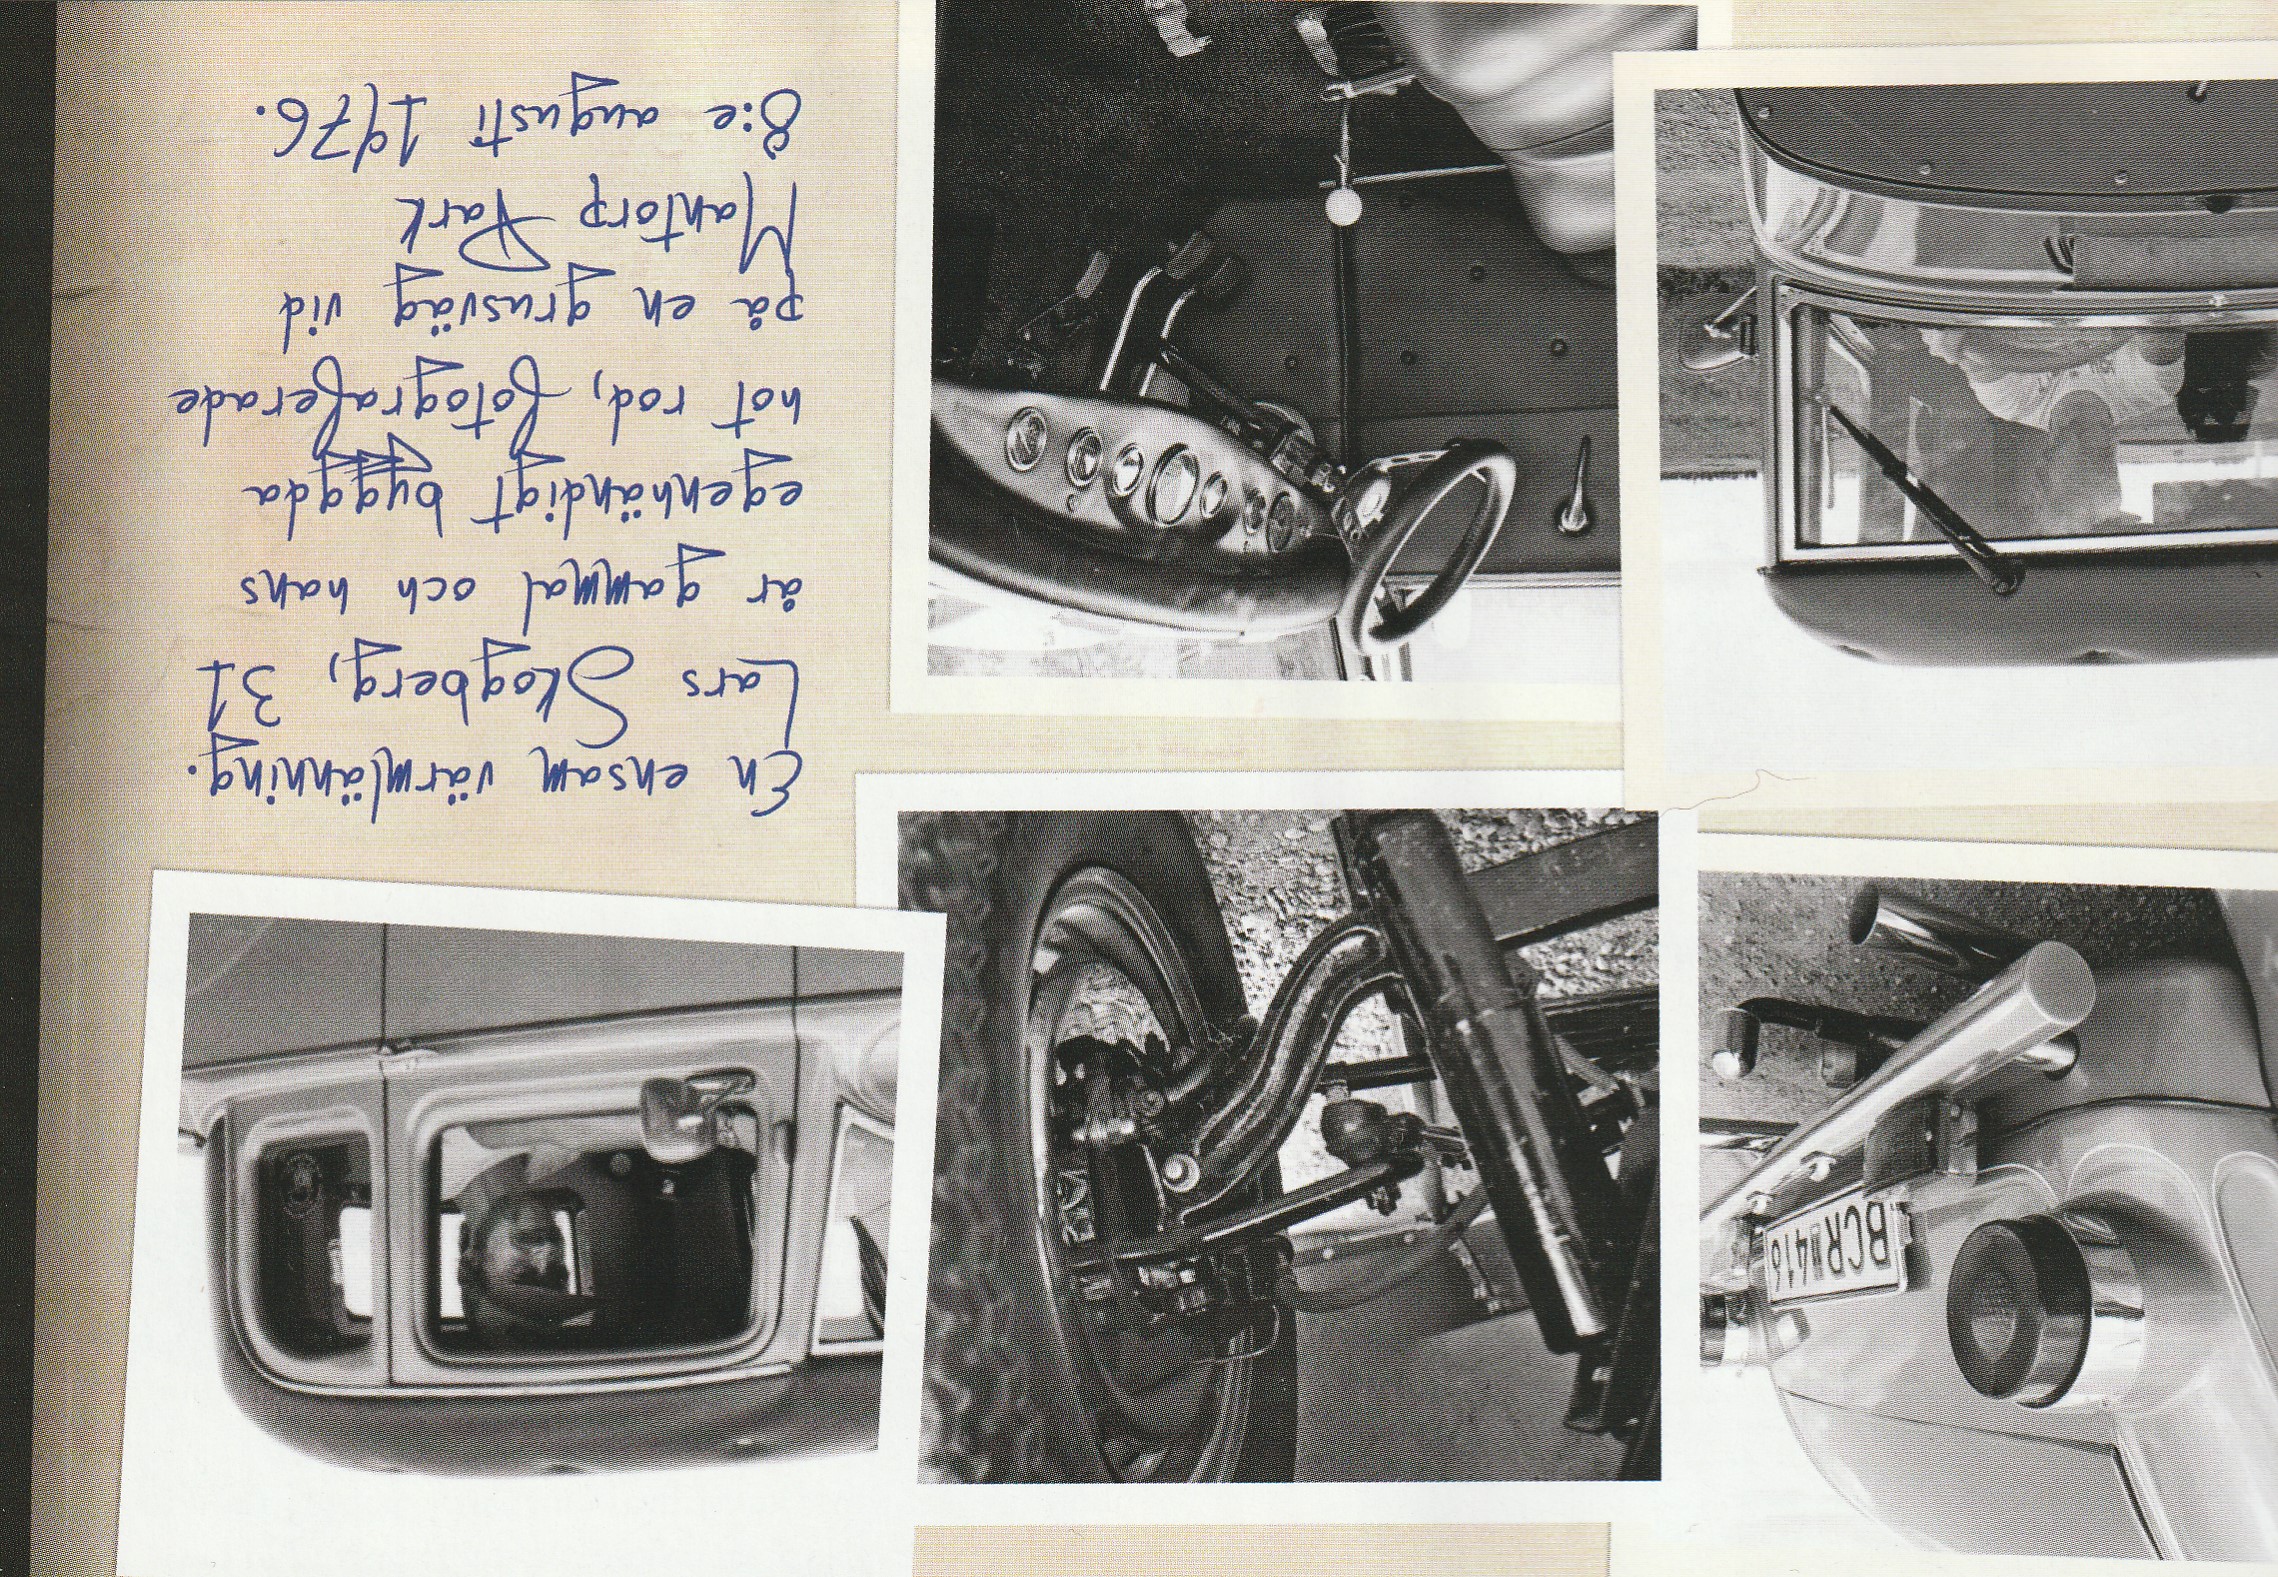 En ensam värmlänning.
Lars Skogberg, 31
år gammal och hans
egenhändigt byggda
hot rod, fotograferade
på en grusväg vid
Mantorp Park
8:e augusti 1976.
BCR 416